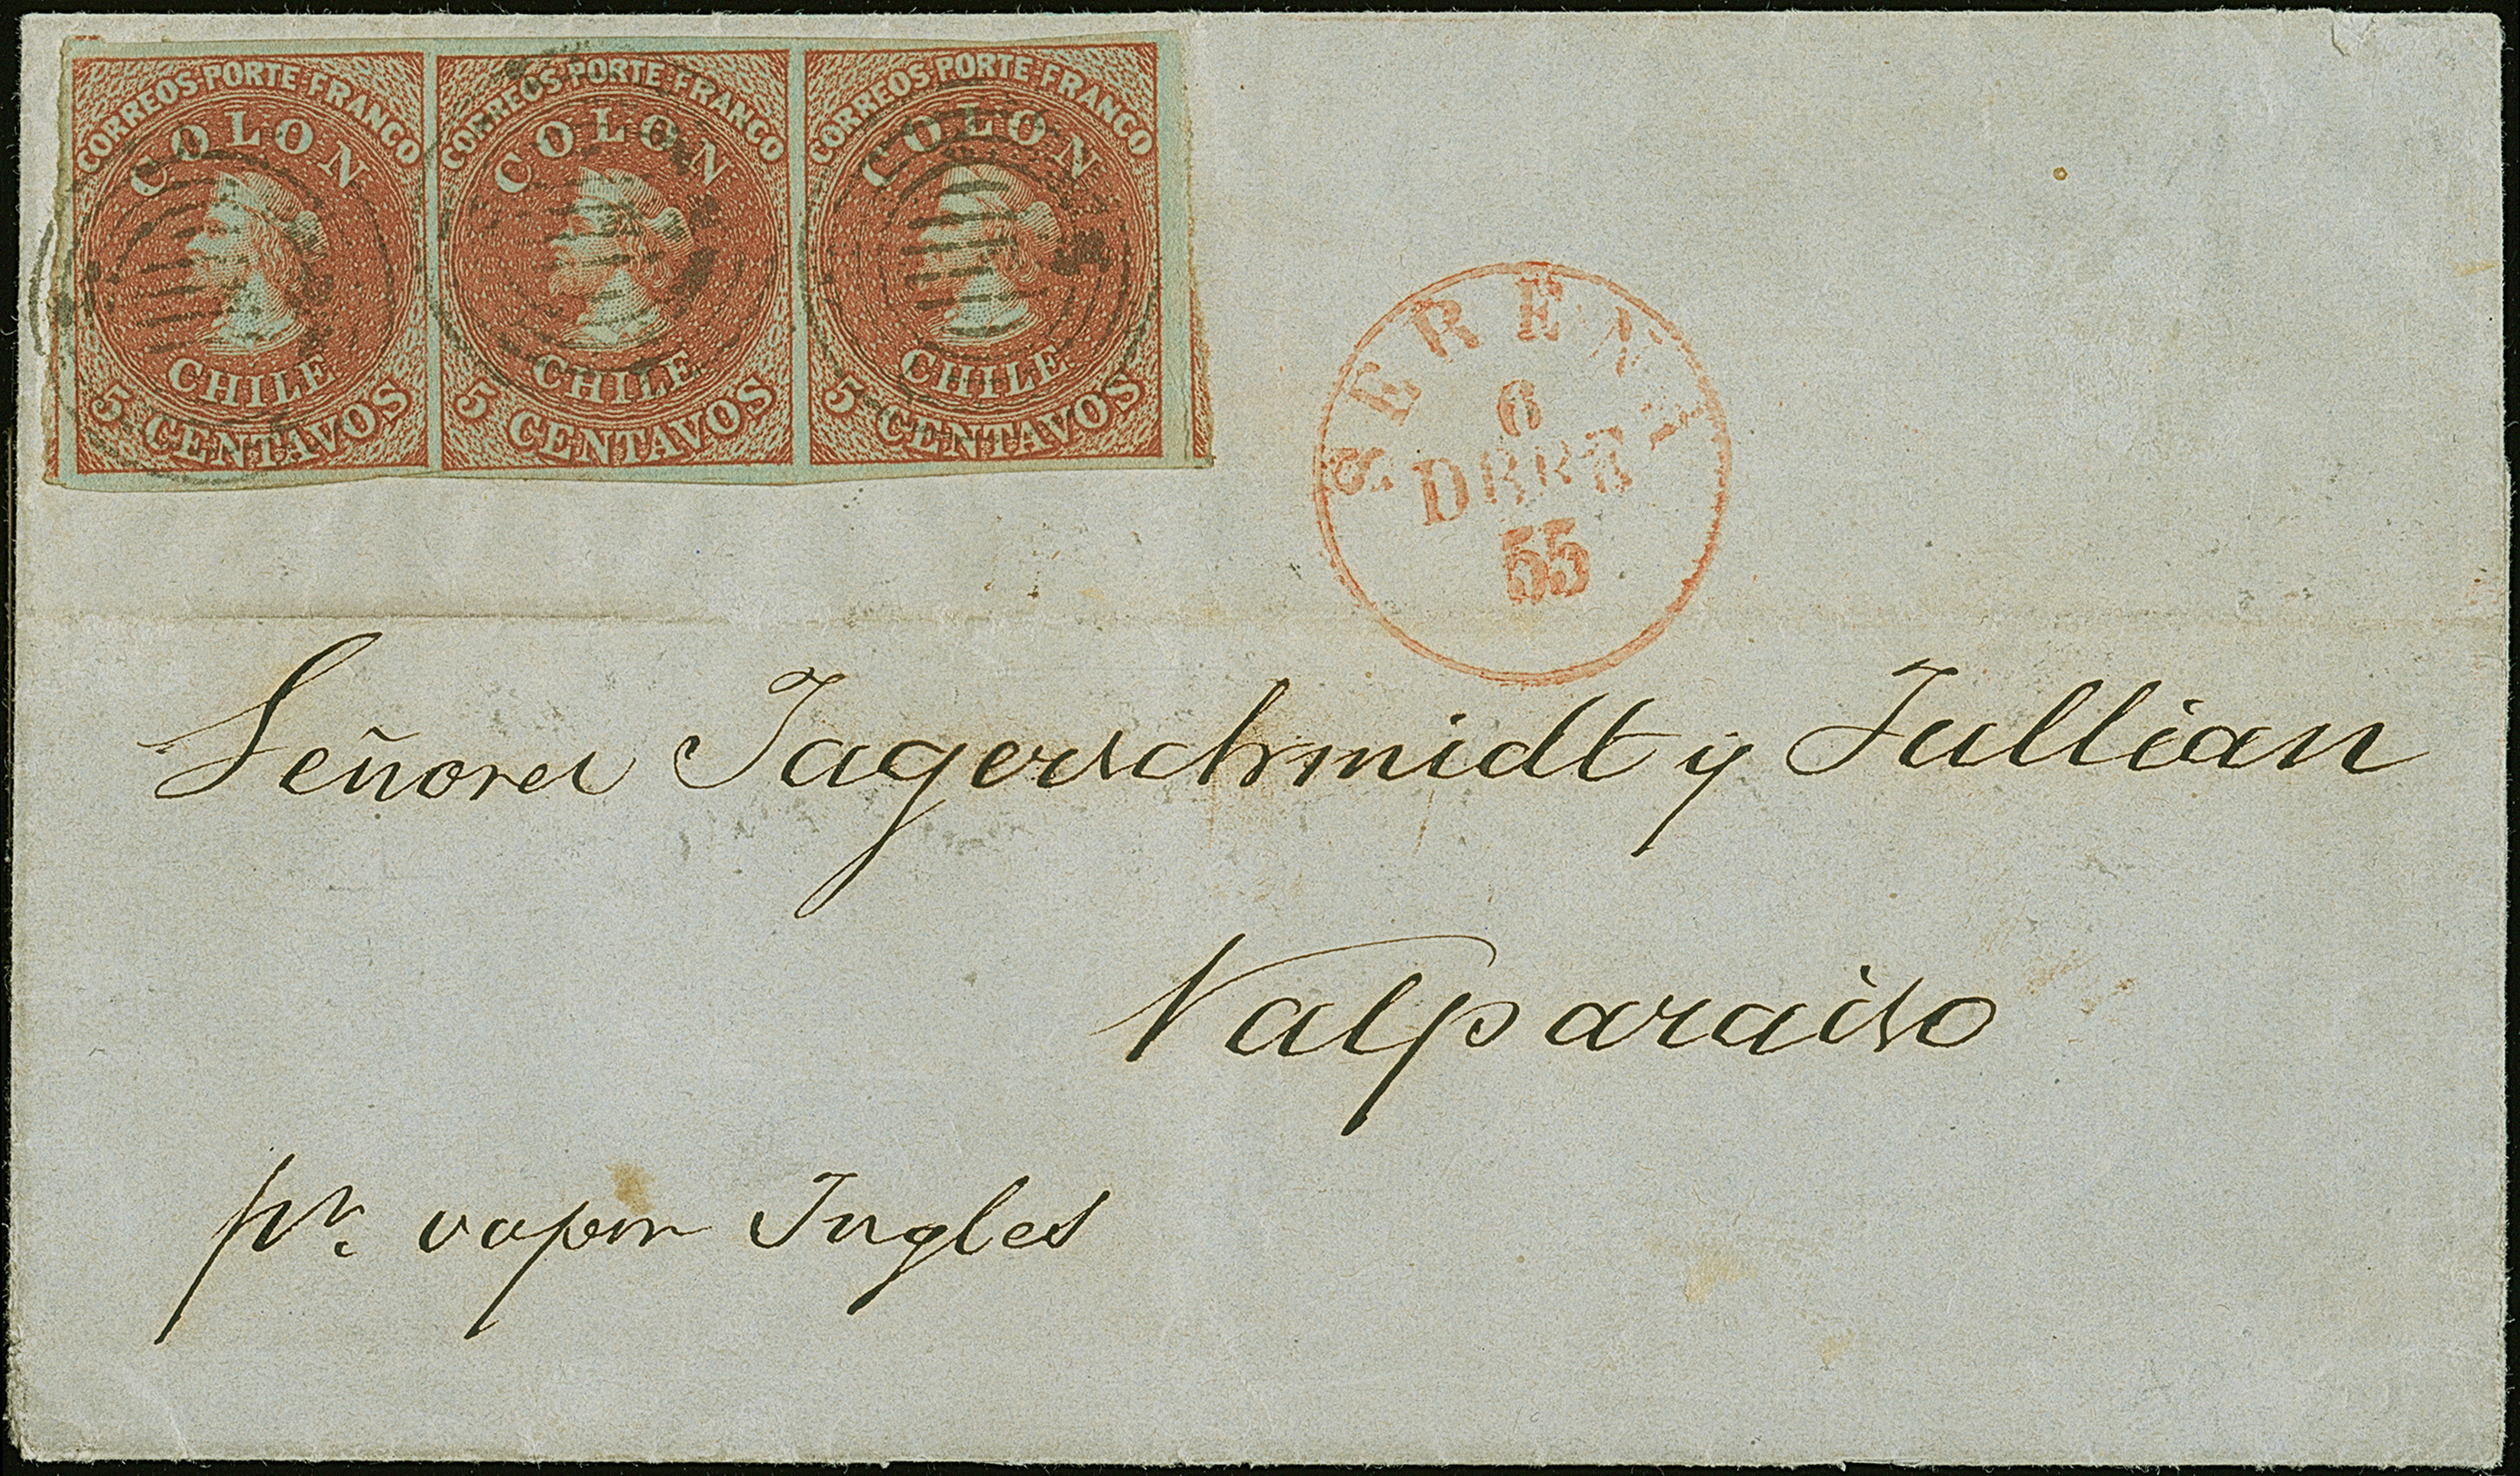 CORREOS PORTE FRANCO CORREOS PORTE FRANCO CORREOS PORTE FRANCO
COLON COLON COLON
CHILE CHILE CHILE
5 CENTAVOS 5 CENTAVOS 5 CENTAVOS
SERENA
6
55
Señores Jagerschmidt y Jullian
Valparaiso
pr. vapor Ingles